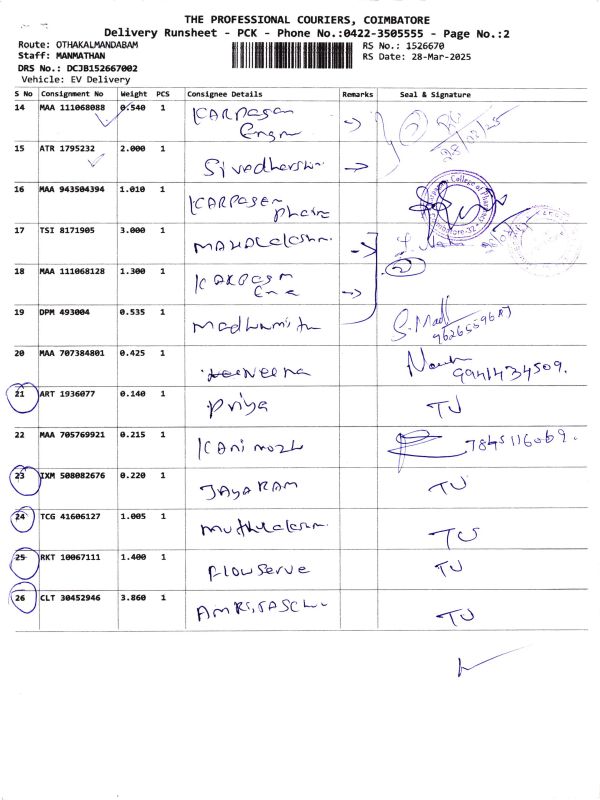 THE PROFESSIONAL COURIERS, COIMBATORE
Delivery Runsheet - PCK - Phone No.:0422-3505555 - Page No.:2
Route: OTHAKALMANDABAM
RS No.: 1526670
Staff: MANMATHAN
RS Date: 28-Mar-2025
DRS No.: DCJB152667002
Vehicle: EV Delivery
S No Consignment No Weight PCS Consignee Details Remarks Seal & Signature
14 MAA 111068088 0.540 1 KARPAGAM
Engn
15 ATR 1795232 2.000 1
28/03/25
16 MAA 943504394 1.010 1 KARPAGAM
Pharc
17 TSI 8171905 3.000 1
18 MAA 111068128 1.300 1 KARPAGAM
2
19 DPM 493004 0.535 1
20 MAA 707384801 0.425 1 Neena
9941434509.
21 ART 1936077 0.140 1 Priya TU
22 MAA 705769921 0.215 1 KANIMOZH 7845116069.
23 IXM 508082676 0.220 1 JAYARAM TU
24 TCG 41606127 1.005 1 TU
25 RKT 10067111 1.400 1 FLOWSERVE TU
26 CLT 30452946 3.860 1 TU